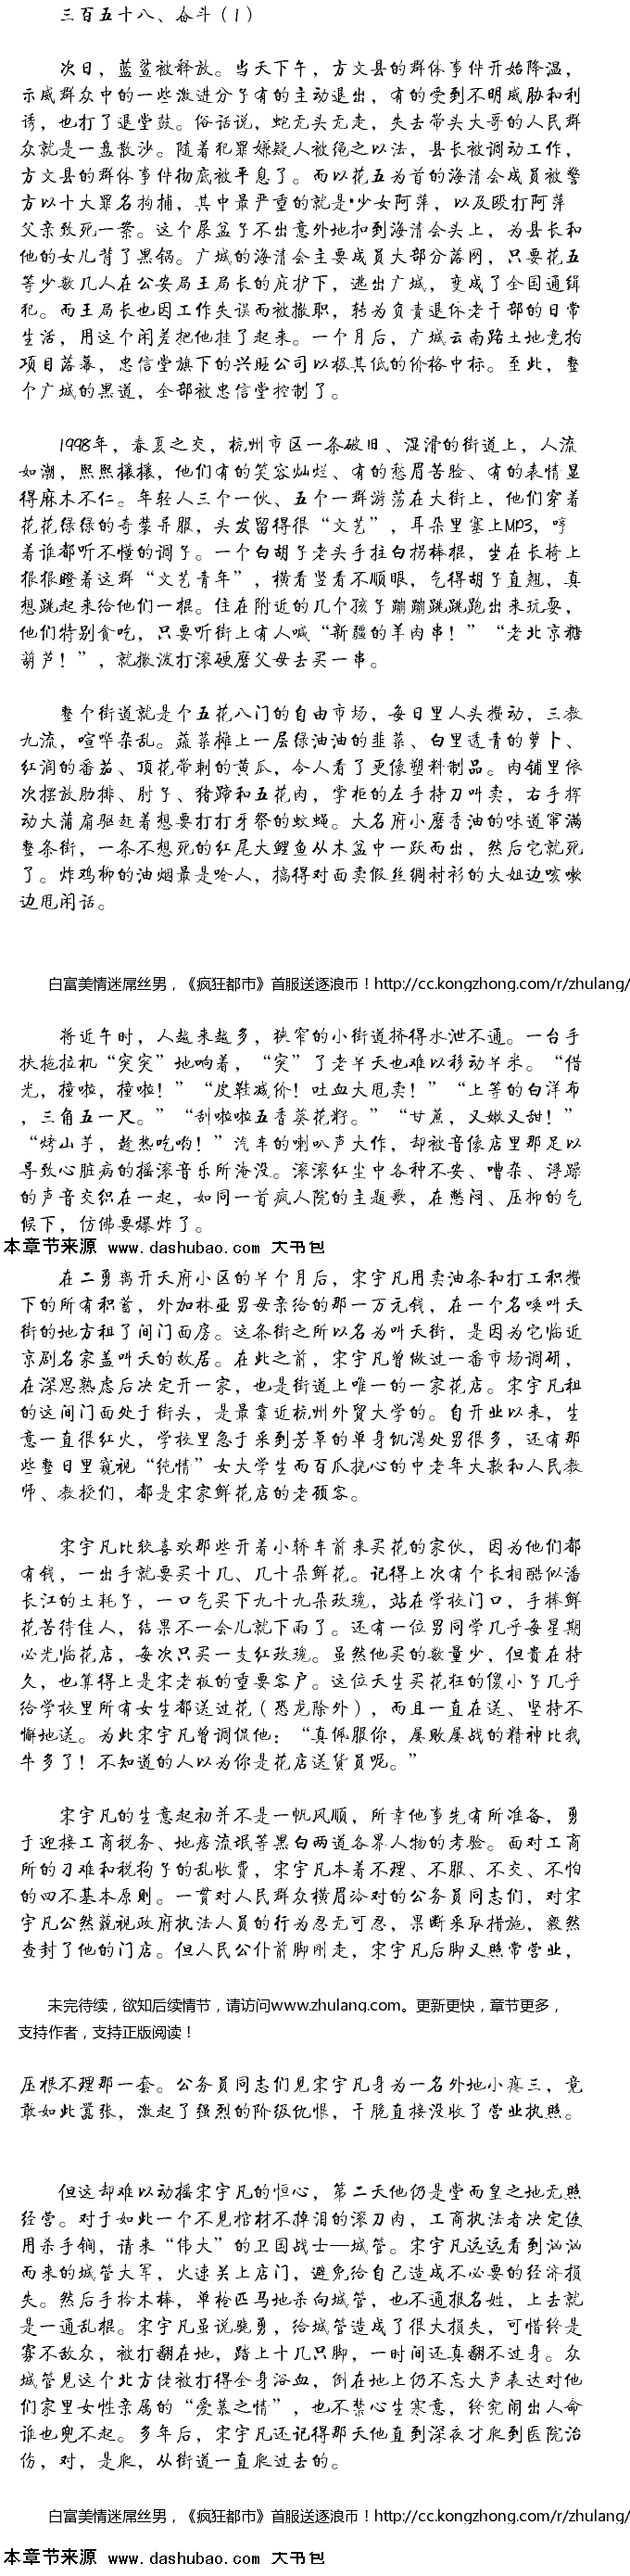 三百五十八、奋斗（1）
次日，蓝鲨被释放。当天下午，方文县的群体事件开始降温，
示威群众中的一些激进分子有的主动退出，有的受到不明威胁和利
诱，也打了退堂鼓。俗话说，蛇无头无走，失去带头大哥的人民群
众就是一盘散沙。随着犯罪嫌疑人被绳之以法，县长被调动工作，
方文县的群体事件彻底被平息了。而以花五为首的海清会成员被警
方以十大罪名拘捕，其中最严重的就是·少女阿萍，以及殴打阿萍
父亲致死一案。这个屎盆子不出意外地扣到海清会头上，为县长和
他的女儿背了黑锅。广城的海清会主要成员大部分落网，只要花五
等少数几人在公安局王局长的庇护下，逃出广城，变成了全国通缉
犯。而王局长也因工作失误而被撤职，转为负责退休老干部的日常
生活，用这个闲差把他挂了起来。一个月后，广城云南路土地竞拍
项目落幕，忠信堂旗下的兴旺公司以极其低的价格中标。至此，整
个广城的黑道，全部被忠信堂控制了。
1998年，春夏之交，杭州市区一条破旧、湿滑的街道上，人流
如潮，熙熙攘攘，他们有的笑容灿烂、有的愁眉苦脸、有的表情显
得麻木不仁。年轻人三个一伙、五个一群游荡在大街上，他们穿着
花花绿绿的奇装异服，头发留得很“文艺”，耳朵里塞上MP3，哼
着谁都听不懂的调子。一个白胡子老头手拄白拐棒棍，坐在长椅上
狠狠瞪着这群“文艺青年”，横看竖看不顺眼，气得胡子直翘，真
想跳起来给他们一棍。住在附近的几个孩子蹦蹦跳跳跑出来玩耍，
他们特别贪吃，只要听街上有人喊“新疆的羊肉串！”“老北京糖
葫芦！”，就撒泼打滚硬磨父母去买一串。
整个街道就是个五花八门的自由市场，每日里人头攒动，三教
九流，喧哗杂乱。蔬菜摊上一层绿油油的韭菜、白里透青的萝卜、
红润的番茄、顶花带刺的黄瓜，令人看了更像塑料制品。肉铺里依
次摆放肋排、肘子、猪蹄和五花肉，掌柜的左手持刀叫卖，右手挥
动大蒲扇驱赶着想要打打牙祭的蚊蝇。大名府小磨香油的味道窜满
整条街，一条不想死的红尾大鲤鱼从木盆中一跃而出，然后它就死
了。炸鸡柳的油烟最是呛人，搞得对面卖假丝绸衬衫的大姐边咳嗽
边甩闲话。
白富美情迷屌丝男，《疯狂都市》首服送逐浪币！http://cc.kongzhong.com/r/zhulang/
将近午时，人越来越多，狭窄的小街道挤得水泄不通。一台手
扶拖拉机“突突”地响着，“突”了老半天也难以移动半米。“借
光，撞啦，撞啦！”“皮鞋减价！吐血大甩卖！”“上等的白洋布
，三角五一尺。”“刮啦啦五香葵花籽。”“甘蔗，又嫩又甜！”
“烤山芋，趁热吃哟！”汽车的喇叭声大作，却被音像店里那足以
导致心脏病的摇滚音乐所淹没。滚滚红尘中各种不安、嘈杂、浮躁
的声音交织在一起，如同一首疯人院的主题歌，在憋闷、压抑的气
候下，仿佛要爆炸了。
本章节来源 www.dashubao.com 大书包
在二勇离开天府小区的半个月后，宋宇凡用卖油条和打工积攒
下的所有积蓄，外加林亚男母亲给的那一万元钱，在一个名唤叫天
街的地方租了间门面房。这条街之所以名为叫天街，是因为它临近
京剧名家盖叫天的故居。在此之前，宋宇凡曾做过一番市场调研，
在深思熟虑后决定开一家，也是街道上唯一的一家花店。宋宇凡租
的这间门面处于街头，是最靠近杭州外贸大学的。自开业以来，生
意一直很红火，学校里急于采到芳草的单身饥渴处男很多，还有那
些整日里窥视“纯情”女大学生而百爪挠心的中老年大款和人民教
师、教授们，都是宋家鲜花店的老顾客。
宋宇凡比较喜欢那些开着小轿车前来买花的家伙，因为他们都
有钱，一出手就要买十几、几十朵鲜花。记得上次有个长相酷似潘
长江的土耗子，一口气买下九十九朵玫瑰，站在学校门口，手捧鲜
花苦待佳人，结果不一会儿就下雨了。还有一位男同学几乎每星期
必光临花店，每次只买一支红玫瑰。虽然他买的数量少，但贵在持
久，也算得上是宋老板的重要客户。这位天生买花狂的傻小子几乎
给学校里所有女生都送过花（恐龙除外），而且一直在送、坚持不
懈地送。为此宋宇凡曾调侃他：“真佩服你，屡败屡战的精神比我
牛多了！不知道的人以为你是花店送货员呢。”
宋宇凡的生意起初并不是一帆风顺，所幸他事先有所准备，勇
于迎接工商税务、地痞流氓等黑白两道各界人物的考验。面对工商
所的刁难和税狗子的乱收费，宋宇凡本着不理、不服、不交、不怕
的四不基本原则。一贯对人民群众横眉冷对的公务员同志们，对宋
宇凡公然藐视政府执法人员的行为忍无可忍，果断采取措施，毅然
查封了他的门店。但人民公仆前脚刚走，宋宇凡后脚又照常营业，
未完待续，欲知后续情节，请访问www.zhulang.com。更新更快，章节更多，
支持作者，支持正版阅读！
压根不理那一套。公务员同志们见宋宇凡身为一名外地小瘪三，竟
敢如此嚣张，激起了强烈的阶级仇恨，干脆直接没收了营业执照。
但这却难以动摇宋宇凡的恒心，第二天他仍是堂而皇之地无照
经营。对于如此一个不见棺材不掉泪的滚刀肉，工商执法者决定使
用杀手锏，请来“伟大”的卫国战士—城管。宋宇凡远远看到汹汹
而来的城管大军，火速关上店门，避免给自己造成不必要的经济损
失。然后手拎木棒，单枪匹马地杀向城管，也不通报名姓，上去就
是一通乱棍。宋宇凡虽说骁勇，给城管造成了很大损失，可惜终是
寡不敌众，被打翻在地，踏上十几只脚，一时间还真翻不过身。众
城管见这个北方佬被打得全身浴血，倒在地上仍不忘大声表达对他
们家里女性亲属的“爱慕之情”，也不禁心生寒意，终究闹出人命
谁也兜不起。多年后，宋宇凡还记得那天他直到深夜才爬到医院治
伤，对，是爬，从街道一直爬过去的。
白富美情迷屌丝男，《疯狂都市》首服送逐浪币！http://cc.kongzhong.com/r/zhulang/
本章节来源 www.dashubao.com 大书包